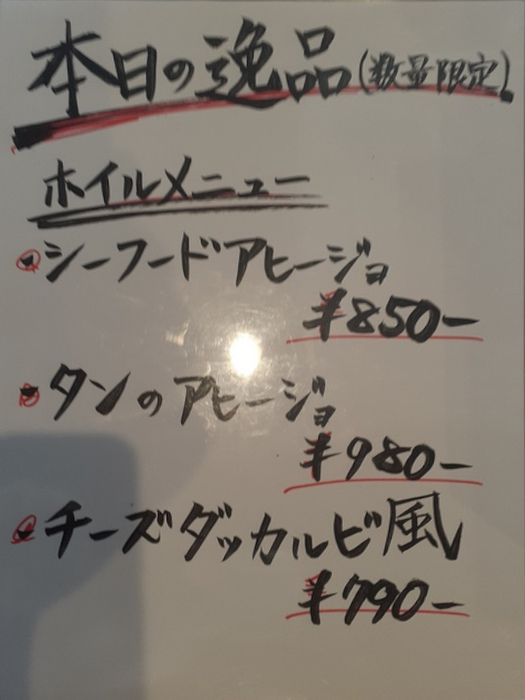 本日の逸品(数量限定)
ホイルメニュー
・シーフードアヒージョ
¥850-
・タンのアヒージョ
¥980-
・チーズダッカルビ風
¥790-